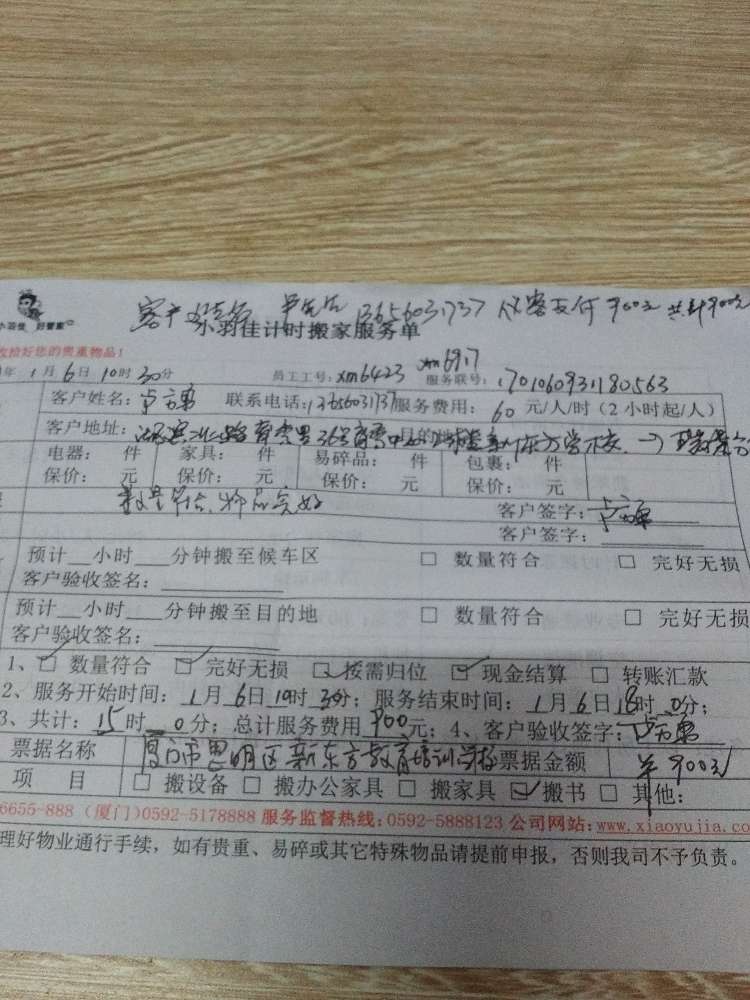 小羽佳 好管家
客户 卢先生 13656031737 仅需支付900元 共计900元
小羽佳计时搬家服务单
收拾好您的贵重物品!
年1月6日10时30分 员工工号:xm6423 xm6917 服务联号:170106093180563
客户姓名: 联系电话:13656031737 服务费用:60元/人/时(2小时起/人)
客户地址:湖滨北路 36号 目的地 新东方学校
电器: 件 家具: 件 易碎品: 件 包裹: 件
保价: 元 保价: 元 保价: 元 保价: 元
数量符合、物品完好 客户签字:
客户签字:
预计__小时___分钟搬至候车区 □ 数量符合 □ 完好无损
客户验收签名:
预计__小时___分钟搬至目的地 □ 数量符合 □ 完好无损
客户验收签名:
1、☑ 数量符合 ☑ 完好无损 ☑ 按需归位 ☑ 现金结算 □ 转账汇款
2、服务开始时间:1月6日10时30分; 服务结束时间:1月6日18时0分;
3、共计:15时0分; 总计服务费用900元; 4、客户验收签字:
票据名称 厦门市思明区新东方教育培训学校 票据金额 ¥900元
项 目 □ 搬设备 □ 搬办公家具 □ 搬家具 ☑ 搬书 □ 其他:
6655-888 (厦门)0592-5178888 服务监督热线:0592-5888123 公司网站:www.xiaoyujia.co
理好物业通行手续,如有贵重、易碎或其它特殊物品请提前申报,否则我司不予负责。